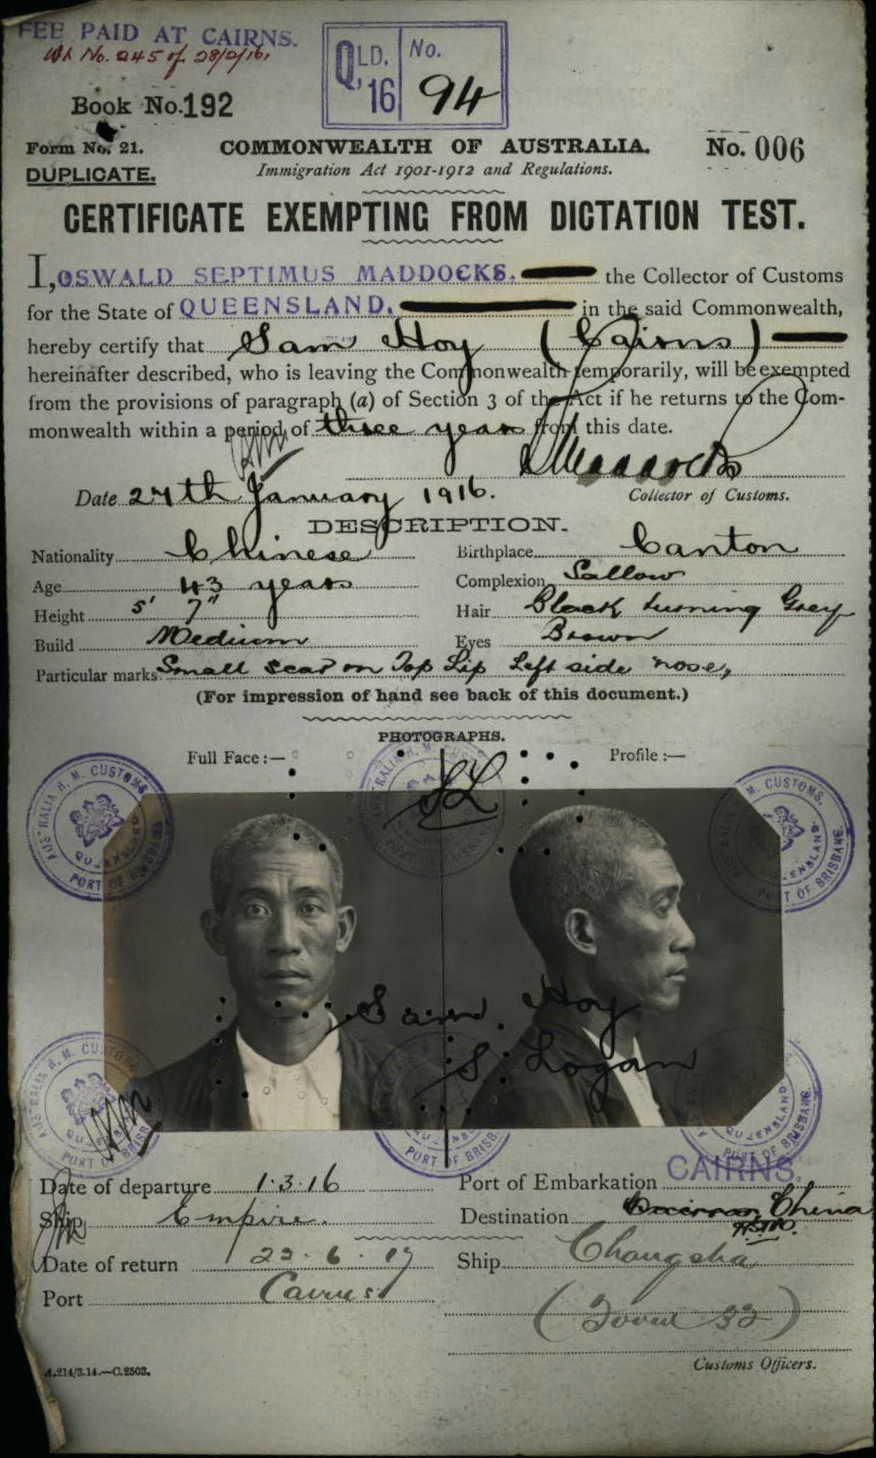 FEE PAID AT CAIRNS.
No. 245 of 28/2/16.
QLD. '16 No. 94
Book No. 192
Form No. 21.
DUPLICATE.
COMMONWEALTH OF AUSTRALIA.
No. 006
Immigration Act 1901-1912 and Regulations.
CERTIFICATE EXEMPTING FROM DICTATION TEST.
I, OSWALD SEPTIMUS MADDOCKS. the Collector of Customs
for the State of QUEENSLAND. in the said Commonwealth,
hereby certify that Sam Hoy (Cairns)
hereinafter described, who is leaving the Commonwealth temporarily, will be exempted
from the provisions of paragraph (a) of Section 3 of the Act if he returns to the Com-
monwealth within a period of three years from this date.
Date 24th January 1916.
Collector of Customs.
DESCRIPTION.
Nationality Chinese Birthplace Canton
Age 43 years Complexion Sallow
Height 5' 7" Hair Black turning Grey
Build Medium Eyes Brown
Particular marks Small scar on Top Lip Left side nose,
(For impression of hand see back of this document.)
PHOTOGRAPHS.
Full Face :— Profile :—
AUSTRALIA H. M. CUSTOMS QUEENSLAND PORT OF BRISBANE
AUSTRALIA H. M. CUSTOMS PORT OF BRISBANE
M. CUSTOMS. QUEENSLAND PORT OF BRISBANE.
SL
Sam Hoy
S Logan
AUSTRALIA H. M. CUSTOMS PORT OF BRISBANE
PORT OF BRISBANE
QUEENSLAND PORT OF BRISBANE.
Date of departure 1.3.16 Port of Embarkation CAIRNS.
Ship Empire. Destination China
Date of return 22.6.19 Ship Changsha
Port Cairns
Customs Officers.
A.214/3.14.—C.2503.